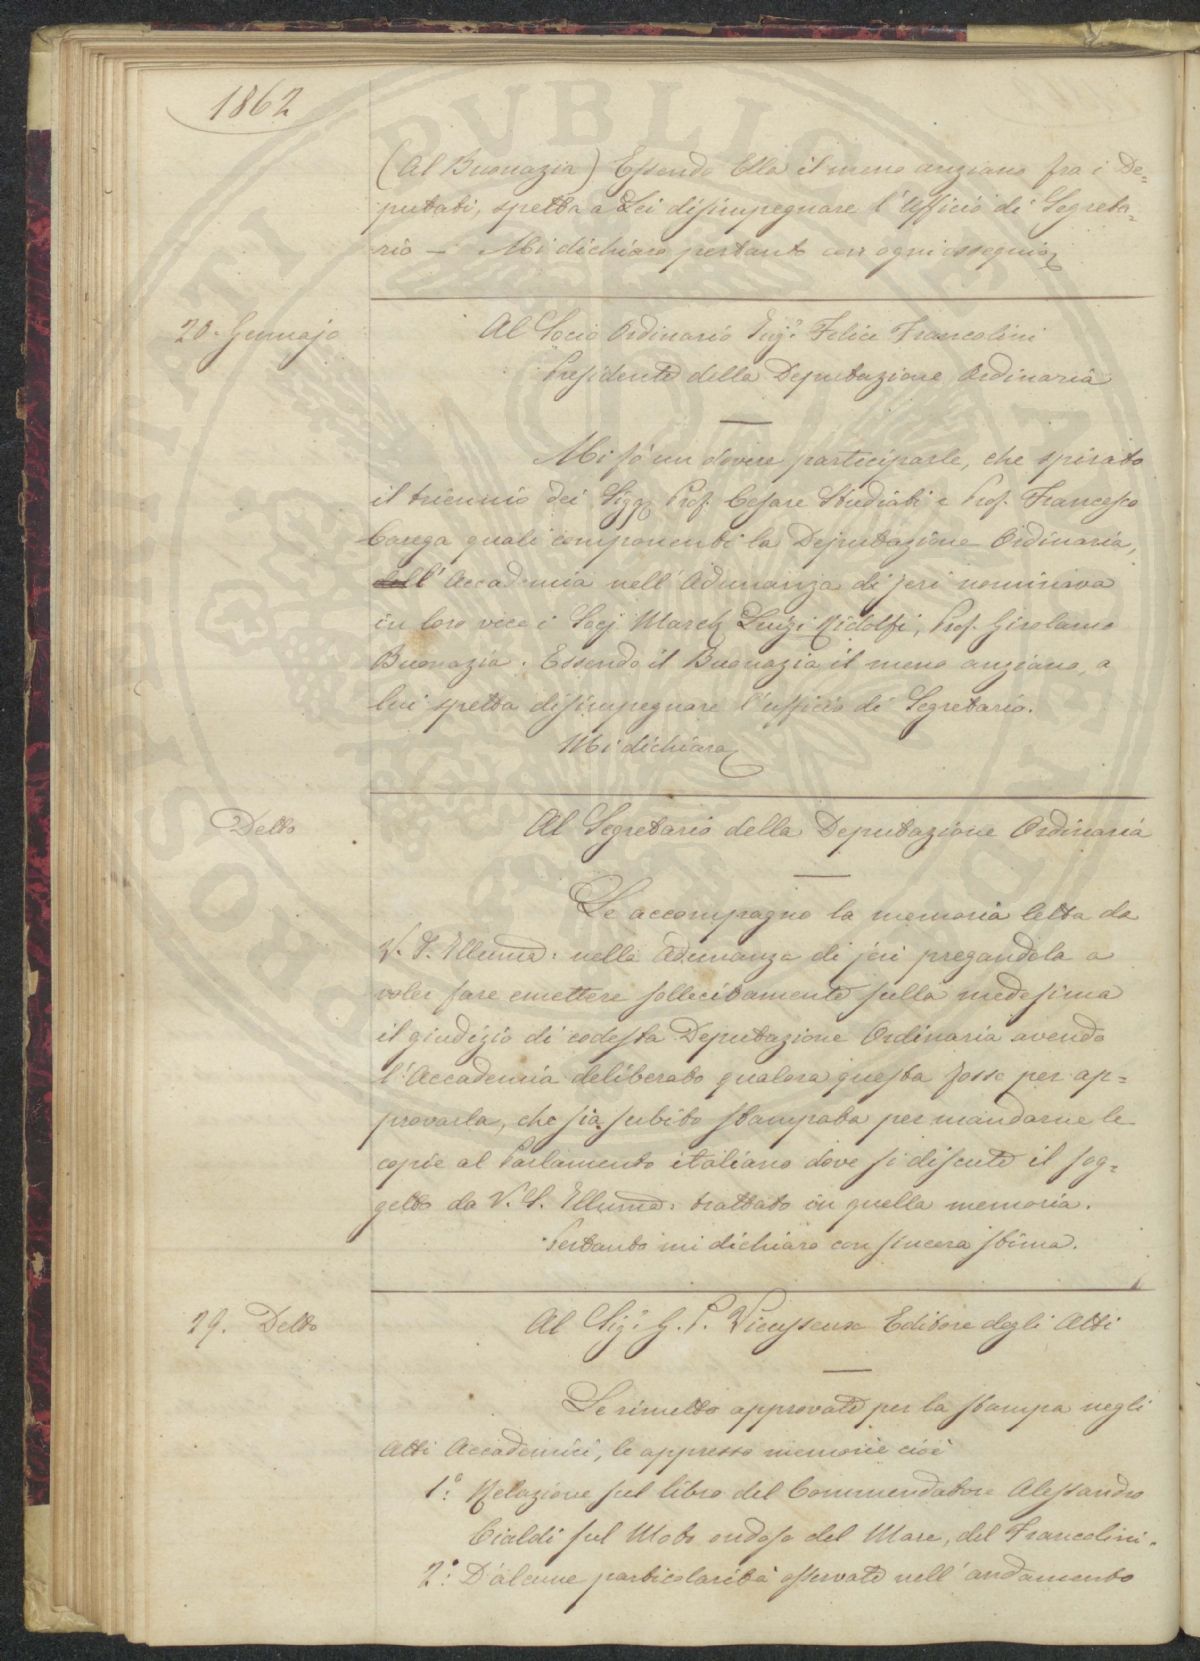 1862
(Al Buonazia) Essendo Ella il meno anziano fra i De=
putati, spetta a Lei disimpegnare l'Ufficio di Segreta=
rio — Mi dichiaro pertanto con ogni ossequio
20. Gennajo
Al Socio Ordinario Ing.e Felice Francolini
Presidente della Deputazione Ordinaria
Mi fò un dovere participarle, che spirato
il triennio dei Sigg. Prof. Cesare Studiati e Prof. Francesco
Carega quali componenti la Deputazione Ordinaria,
dell'Accademia nell'Adunanza di jeri nominava
in loro vece i Socj March. Luigi Ridolfi, Prof. Girolamo
Buonazia. Essendo il Buonazia il meno anziano, a
lui spetta disimpegnare l'ufficio di Segretario.
Mi dichiaro
Detto
Al Segretario della Deputazione Ordinaria
Le accompagno la memoria letta da
V. S. Illuma. nella Adunanza di jeri pregandola a
voler fare emettere sollecitamente sulla medesima
il giudizio di codesta Deputazione Ordinaria avendo
l'Accademia deliberato qualora questa fosse per ap=
provarla, che sia subito stampata per mandarne le
copie al Parlamento italiano dove si discute il sog=
getto da V. S. Illuma. trattato in quella memoria.
Pertanto mi dichiaro con sincera stima.
29. Detto
Al Sig. G. P. Vieusseux Editore degli Atti
Le rimetto approvate per la stampa negli
Atti Accademici, le appresso memorie cioè
1.° Relazione sul libro del Commendatore Alessandro
Cialdi sul Moto ondoso del Mare, del Francolini.
2.° D'alcune particolarità osservate nell'andamento
PROSPERITATI PVBLICAE AVGENDAE